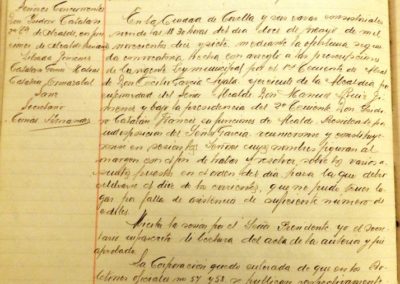 Señores Concurrentes
Don Isidoro Catalán
2º Tte de Alcalde, en fun-
ciones de Alcalde
Catalina
Sanz
Secretario
Comas Hernando
En la Ciudad de Coella y sus casas consistoriales
siendo las 13 horas del día doce de mayo de mil
novecientos diez y siete, mediante la oportuna segun-
da convocatoria, hecha con arreglo a las prescripciones
de la vigente ley municipal por el 1er Teniente de Alcal-
de Don Emilio García Ayala, ejerciente de la Alcaldía por
enfermedad del Señor Alcalde Don Manuel Ruiz Ji-
menez y bajo la presidencia del 2º Teniente Don Isido-
ro Catalán en funciones de Alcalde Presidente por
indisposición del Señor García, reunieronse y constituye-
ronse en sesión los Señores cuyos nombres figuran al
margen con el fin de tratar y resolver sobre los varios a-
suntos puestos en el orden del día para la que debió
celebrarse el diez de los corrientes, y que no pudo tener lu-
gar por falta de asistencia de suficiente numero de
ediles.
Abierta la sesión por el Señor Presidente, yo el Secre-
tario infrascrito di lectura del acta de la anterior y fué
aprobada.
La Corporación quedó enterada de que en los Bo-
letines oficiales nº 57 y 58 se publican respectivamente